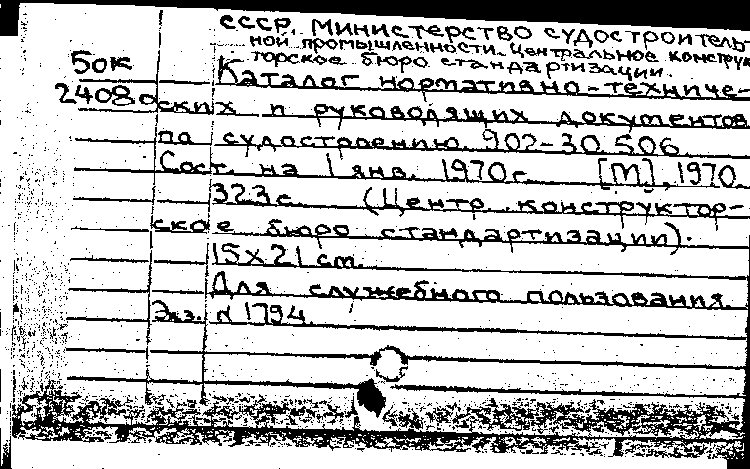 СССР. Министерство судостроитель-
ной промышленности. Центральное конструк-
торское бюро стандартизации.
Бок
24080
Каталог нормативно-техниче-
ских и руководящих документов
по судостроению. 902-30.506.
Сост. на 1 янв. 1970 г. [М], 1970.
323 с. (Центр. конструктор-
ское бюро стандартизации).
15х21 см.
Для служебного пользования.
Экз. № 1794.